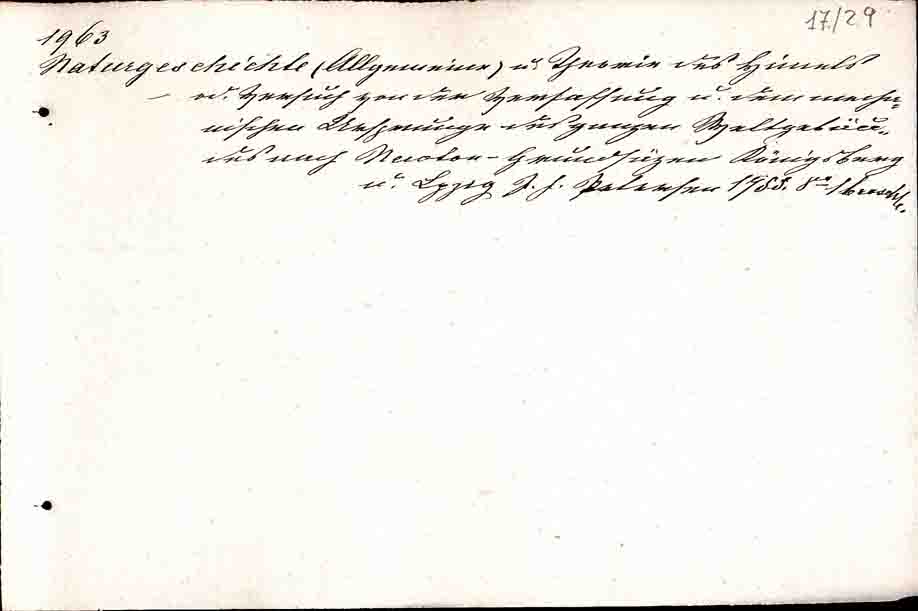 17/29
1963
Naturgeschichte (Allgemeine) u. Theorie des Himels
– od. Versuch von der Verfassung u. dem mecha-
nischen Ursprunge des ganzen Weltgebäu-
des nach Newton-Grundsäzen Königsberg
u. Lpzig J. F. Petersen 1755. 8° 1 brosch.